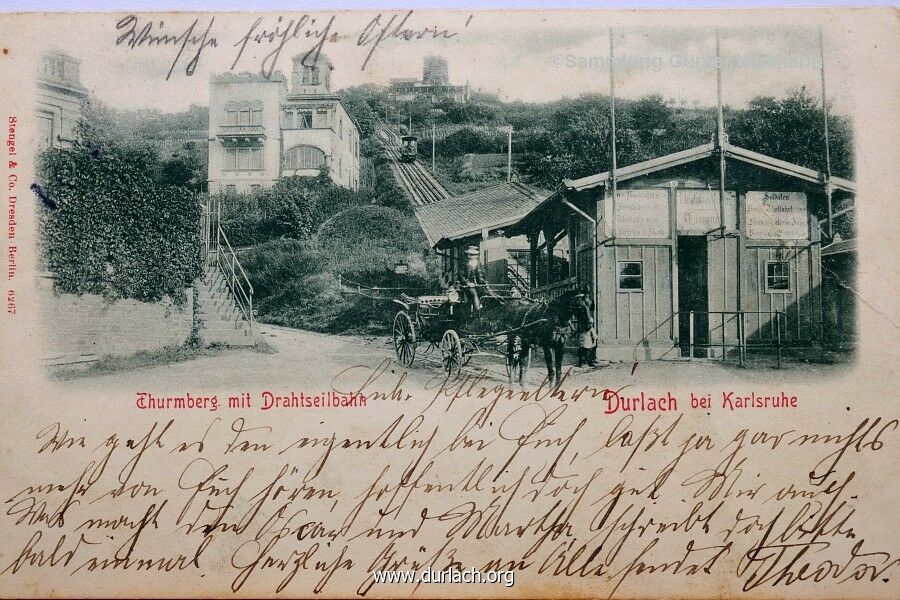 Wünsche fröhliche Ostern!
©Sammlung Günter
Stengel & Co. Dresden Berlin. 6267
Soldaten
Thurmberg mit Drahtseilbahn
Durlach bei Karlsruhe
Lieb. Pflegeeltern!
Wie geht es den eigentlich bei Euch, laßt ja gar nichts
mehr von Euch hören, hoffentlich doch gut. Mir auch.
Was macht den Oscar und Martha, schreibt doch bitte
bald einmal. Herzliche Grüße an Alle sendet Theodor.
www.durlach.org